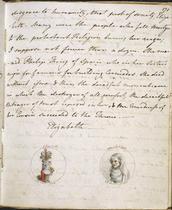 disgrace to humanity, that pest of society, Eliza-
beth. Many were the people who fell martyrs
to the protestant Religion during her reign;
I suppose not fewer than a dozen. She mar-
ried Philip King of Spain who in her Sister's
reign for famous for building Armadas. She died
without issue, & then the dreadful moment came
in which the destroyer of all comfort, the deceitful
Betrayer of trust reposed in her, & the Murderess of
her Cousin succeeded to the Throne.
Elizabeth